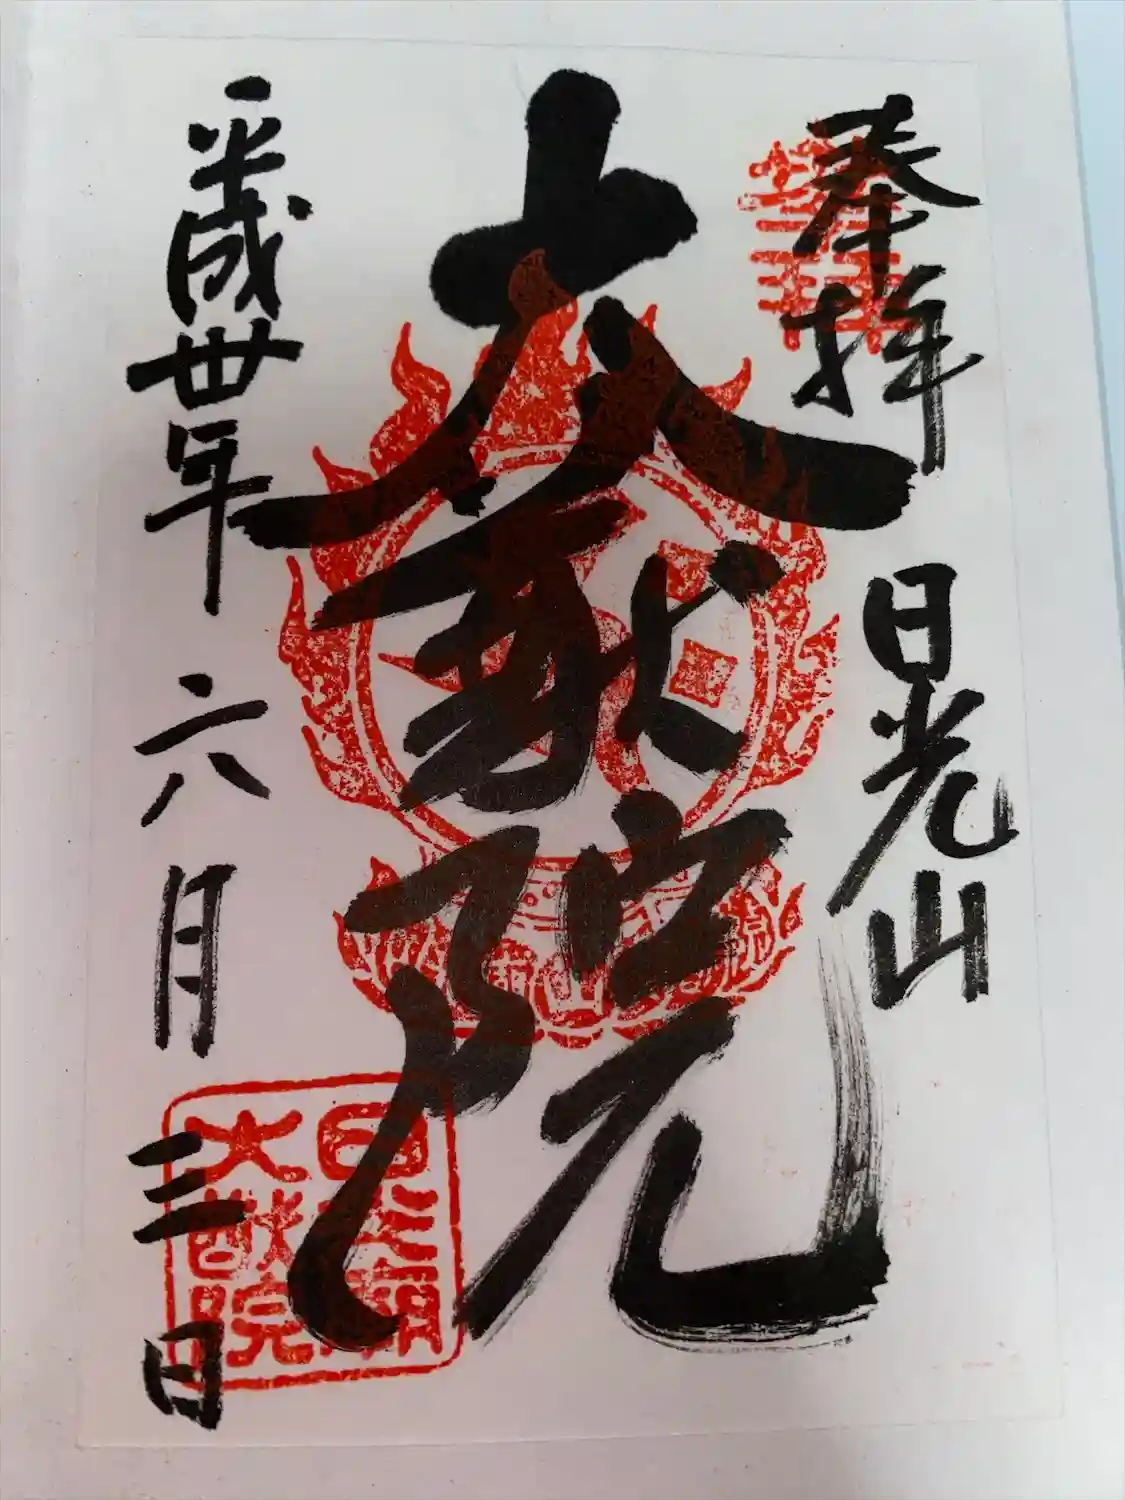 奉拝
日光山
大猷院
平成卅年
六月
三日
大猷院